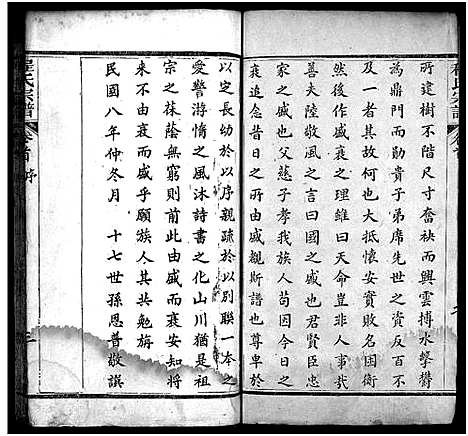 所建樹不階尺寸奮袂而興雲摶水擊鬱
為鼎門而最貴子弟席先世之資反百不
及一者何哉大抵懷安實敗名困衡
然後作盛衰之理雖曰天命豈非人事哉
善夫陸敬輿之言曰國之盛也君賢臣忠
家之盛也父慈子孝我族人苟因今日之
衰追念昔日之所由盛觀斯譜也尊卑於
以定長幼於以序親疏於以別聯一本之
愛警游惰之風沐詩書之化山川猶是祖
宗之葆蔭無窮前此由盛而衰安知將
來不由衰而盛乎願族人其共勉旃
民國八年仲冬月 十七世孫恩普敬譔
程氏宗譜
卷首 序